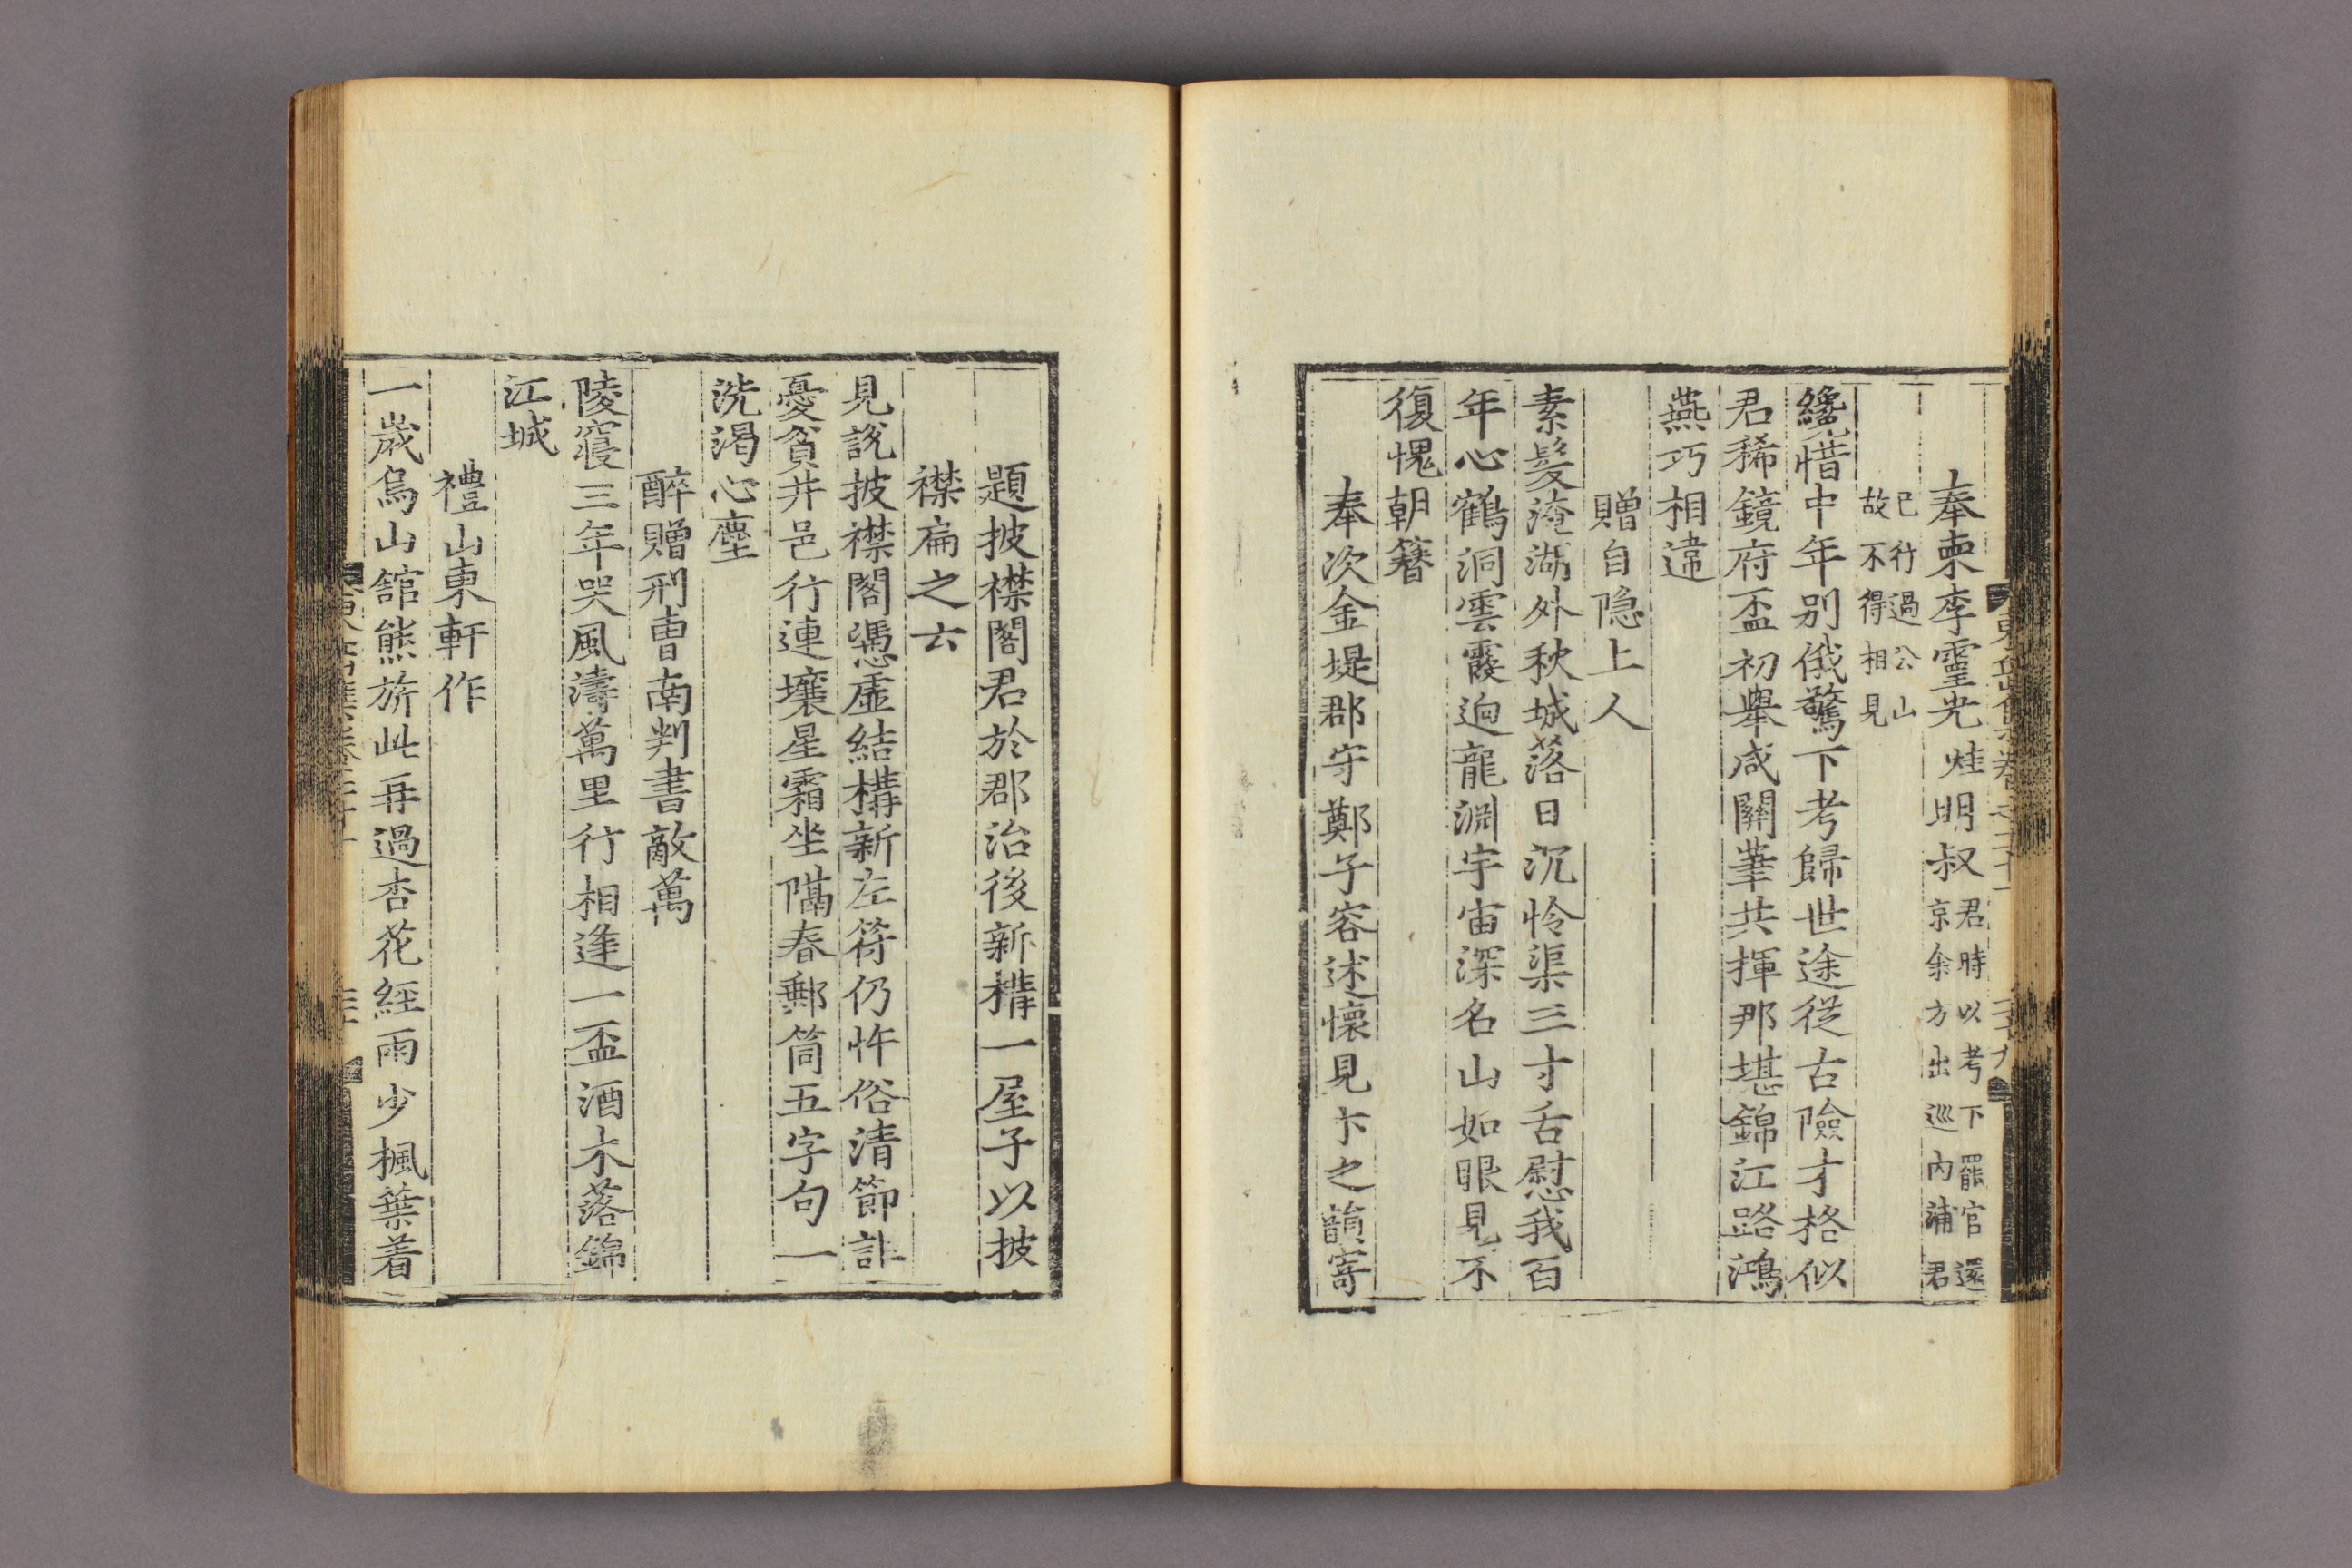 奉柬李靈光烓明叔君時以考下罷官還京余方出巡內浦君
已行過公山故不得相見
纔惜中年別俄驚下考歸世途從古險才格似
君稀鏡府盃初舉咸關葦共揮那堪錦江路鴻
燕巧相違
贈自隐上人
素髮淹湖外秋城落日沉怜渠三寸舌慰我百
年心鶴洞雲霞逈龍淵宇宙深名山如眼見不
復愧朝簪
奉次金堤郡守鄭子容述懷見卞之韻寄
題披襟閣君於郡治後新構一屋子以披
襟扁之云
見說披襟閣憑虛結構新左符仍忤俗清節詎
憂貧井邑行連壤星霜坐隔春郵筒五字句一
洗渴心塵
醉贈刑曹南判書敵萬
陵寢三年哭風濤萬里行相逢一盃酒木落錦
江城
禮山東軒作
一歲烏山舘熊旂此再過杏花經雨少楓葉着